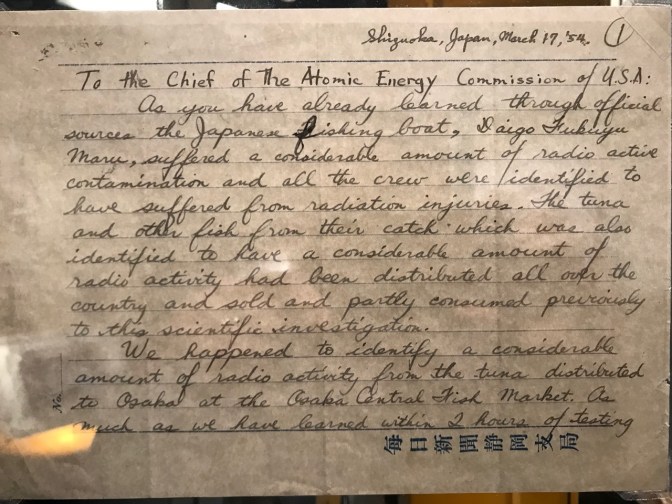 Shizuoka, Japan, March 17, '54. 1
To the Chief of the Atomic Energy Commission of U.S.A:
As you have already learned through official
sources the Japanese fishing boat, Daigo Fukuryu
Maru, suffered a considerable amount of radio active
contamination and all the crew were identified to
have suffered from radiation injuries. The tuna
and other fish from their catch which was also
identified to have a considerable amount of
radio activity had been distributed all over the
country and sold and partly consumed previously
to this scientific investigation.
We happened to identify a considerable
amount of radio activity from the tuna distributed
to Osaka at the Osaka Central Fish Market. As
much as we have learned within 2 hours of testing
No.
毎日新聞静岡支局